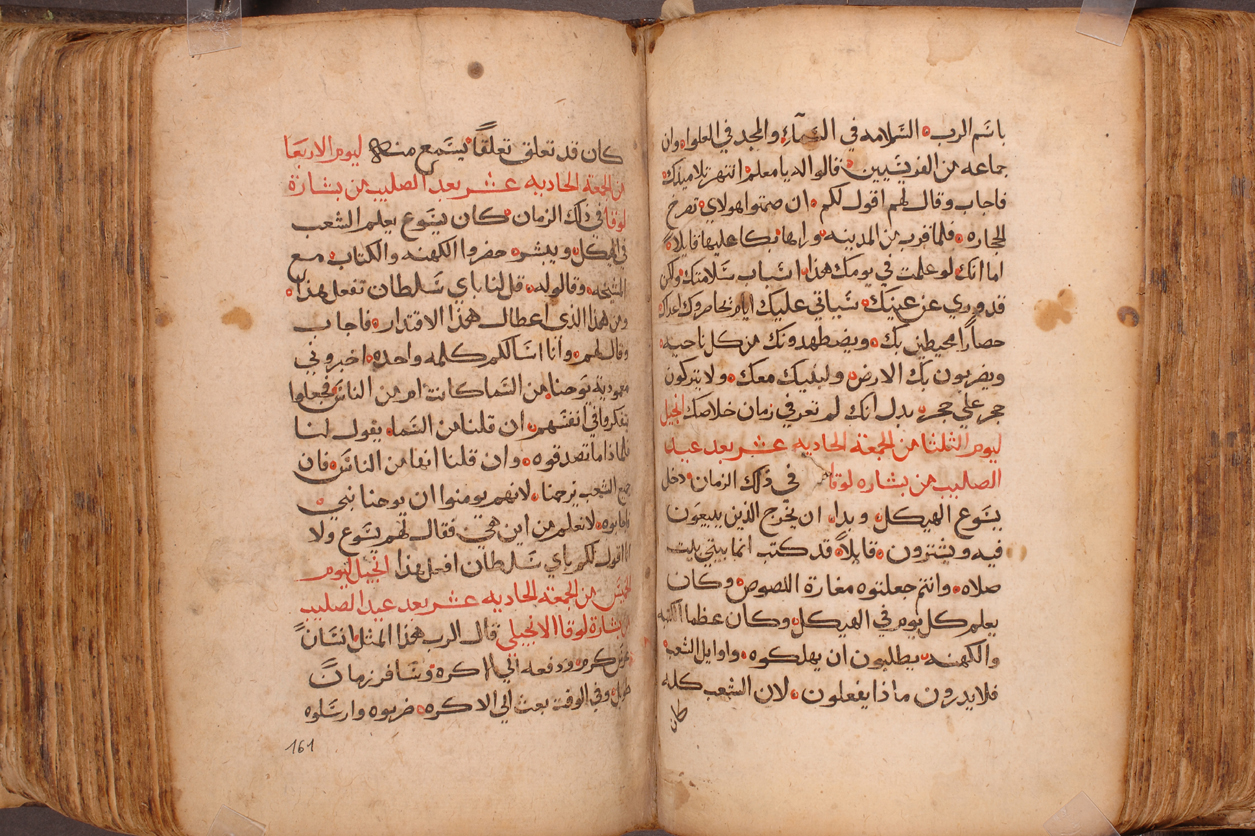 باسم الرب السلامه في السمآء والمجد في العلوا وان
جماعه من الفرنسيين قالوا له يا معلم انتهر تلاميدك
فاجاب وقال لهم اقول لكم ان صمتوا هولاي تصرخ
الحجاره فلما قرب من المدينه وراها بكا عليها قايلا
اما انك لو علمت في يومك هدا اسباب سلامتك ولكن
قد وري عن عينيك سياتي عليك ايام تحاصروك اعداك
حصاراً محيطين بك ويضطهدونك من كل ناحيه
ويضربون بك الارض وبنيك معك ولا يتركون
حجر علي حجر بدل انك لم تعرفي زمان خلاصك انجيل
ليوم الثلثا من الجمعه الحاديه عشر بعد عيد
الصليب من بشاره لوقا في ذلك الزمان دخل
يسوع الهيكل وبدا ان يخرج الذين يبيعون
فيه ويشترون قايلاً قد كتب انما بيتي بيت
صلاه وانتم جعلتوه مغارة اللصوص وكان
يعلم كل يوم في الهيكل وكان عظما الكتبه
والكهنه يطلبون ان يهلكوه واوايل الشعب
فلا يدرون ماذا يفعلون لان الشعب كله
كان
كان قد تعلق تعلقاً يستمع منه ليوم الاربعا
من الجمعه الحاديه عشر بعد الصليب من بشارة
لوقا في ذلك الزمان كان يسوع يعلم الشعب
في الهيكل ويبشر حضروا الكهنه والكتاب مع
المشيخه وقالوا له قل لنا باي سلطان تفعل هذا
ومن هذا الذي اعطاك هذا الاقتدار فاجاب
وقال لهم وانا اسالكم كلمه واحده اخبروني
معمودية يوحنا من السما كانت ام من الناس فجعلوا
يتفكروا في انفسهم ان قلنا من السما يقول لنا
فلماذا ما تصدقوه وان قلنا انها من الناس فان
جميع الشعب يرجمنا لانهم يومنوا ان يوحنا نبي
فاجابوه لا نعلم من اين هي فقال لهم يسوع ولا
انا اقول لكم باي سلطان افعل هذا انجيل ليوم
الخميس من الجمعه الحاديه عشر بعد عيد الصليب
من بشارة لوقا الانجيلي قال الرب هذا المثل انسانً
غرس كرم ودفعه الي اكره وسافر زمانً
طويل وفي الوقت بعث الي الاكره ضربوه وارسلوه
161